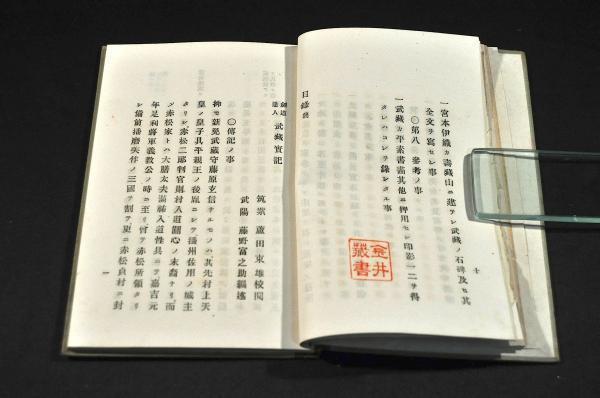 一宮本伊織カ壽藏山ニ建テシ武藏ノ石碑及ヒ其
全文ヲ寫セシ事
〇第八 參考ノ事
一武藏カ平素書畵其他ニ押用セシ印影一二ヲ得
タレハコレヲ錄シタル事
十
金井
藏書
目錄終
劍道
達人 武藏實記
筑紫 蘆田東雄校閱
武陽 藤野富之助編述
〇傳記ノ事
抑モ新免武藏守藤原玄信ナルモノハ其先村上天
皇ノ皇子具平親王ノ後胤ニシテ播州佐用ノ城主
タリシ赤松二郎判官則村入道圓心ノ末裔ナリ而
メ赤松家ト ハ大膳太夫滿祐入道性具ニテ嘉吉元
年足利將軍義敎公ノ時ニ至リ嘗テ赤松所領タリ
シ備前播磨美作ノ三國ヲ割テ更ニ赤松貞村ニ封
一